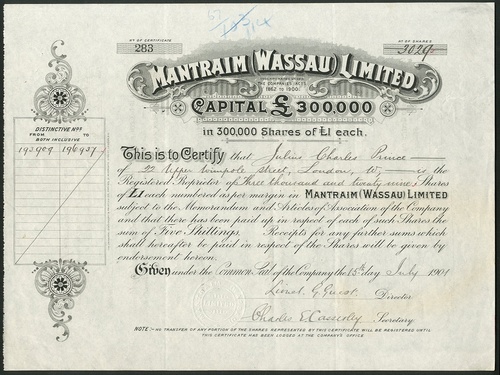 Nº OF CERTIFICATE
283
Nº OF SHARES
3029
MANTRAIM (WASSAU) LIMITED.
THE COMPANIES ACTS
1862 TO 1900.
CAPITAL £300,000
in 300,000 Shares of £1 each.
DISTINCTIVE Nºs
FROM TO
BOTH INCLUSIVE
193909 196937
This is to Certify that Julius Charles Prince
of 22 Upper Wimpole Street, London, W, is the
Registered Proprietor of Three thousand and twenty nine Shares
of £1 each numbered as per margin in MANTRAIM (WASSAU) LIMITED
subject to the Memorandum and Articles of Association of the Company
and that there has been paid up in respect of each of such Shares the
sum of Five Shillings. Receipts for any further sums which
shall hereafter be paid in respect of the Shares will be given by
endorsement hereon.
Given under the Common Seal of the Company the 15th day July 1901
Lionel G Guest. Director
Charles E. Casserley Secretary
NOTE:- NO TRANSFER OF ANY PORTION OF THE SHARES REPRESENTED BY THIS CERTIFICATE WILL BE REGISTERED UNTIL
THIS CERTIFICATE HAS BEEN LODGED AT THE COMPANY'S OFFICE.